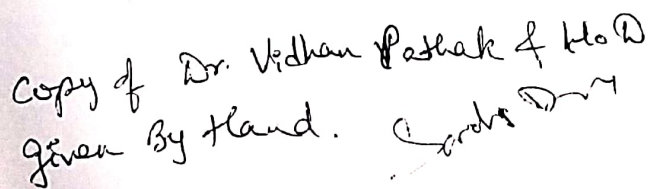 Copy of Dr. Vidhan Pathak & HoD
given By Hand.